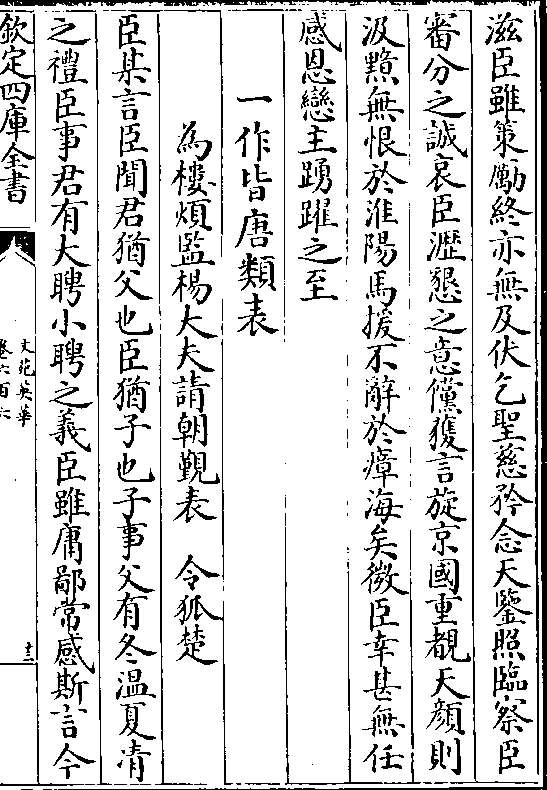 滋臣雖策勵終亦無及伏乞聖慈矜念天鑒照臨察臣
審分之誠哀臣瀝懇之意儻獲言旋京國重覩天顔則
汲黯無恨於淮陽馬援不辭於瘴海矣微臣幸甚無任
感恩戀主踴躍之至
一作皆唐類表
為樓煩監楊大夫請朝覲表　令狐楚
臣某言臣聞君猶父也臣猶子也子事父有冬溫夏凊
之禮臣事君有大聘小聘之義臣雖庸鄙常感斯言今
欽定四庫全書
文苑英華
卷六百六
十二